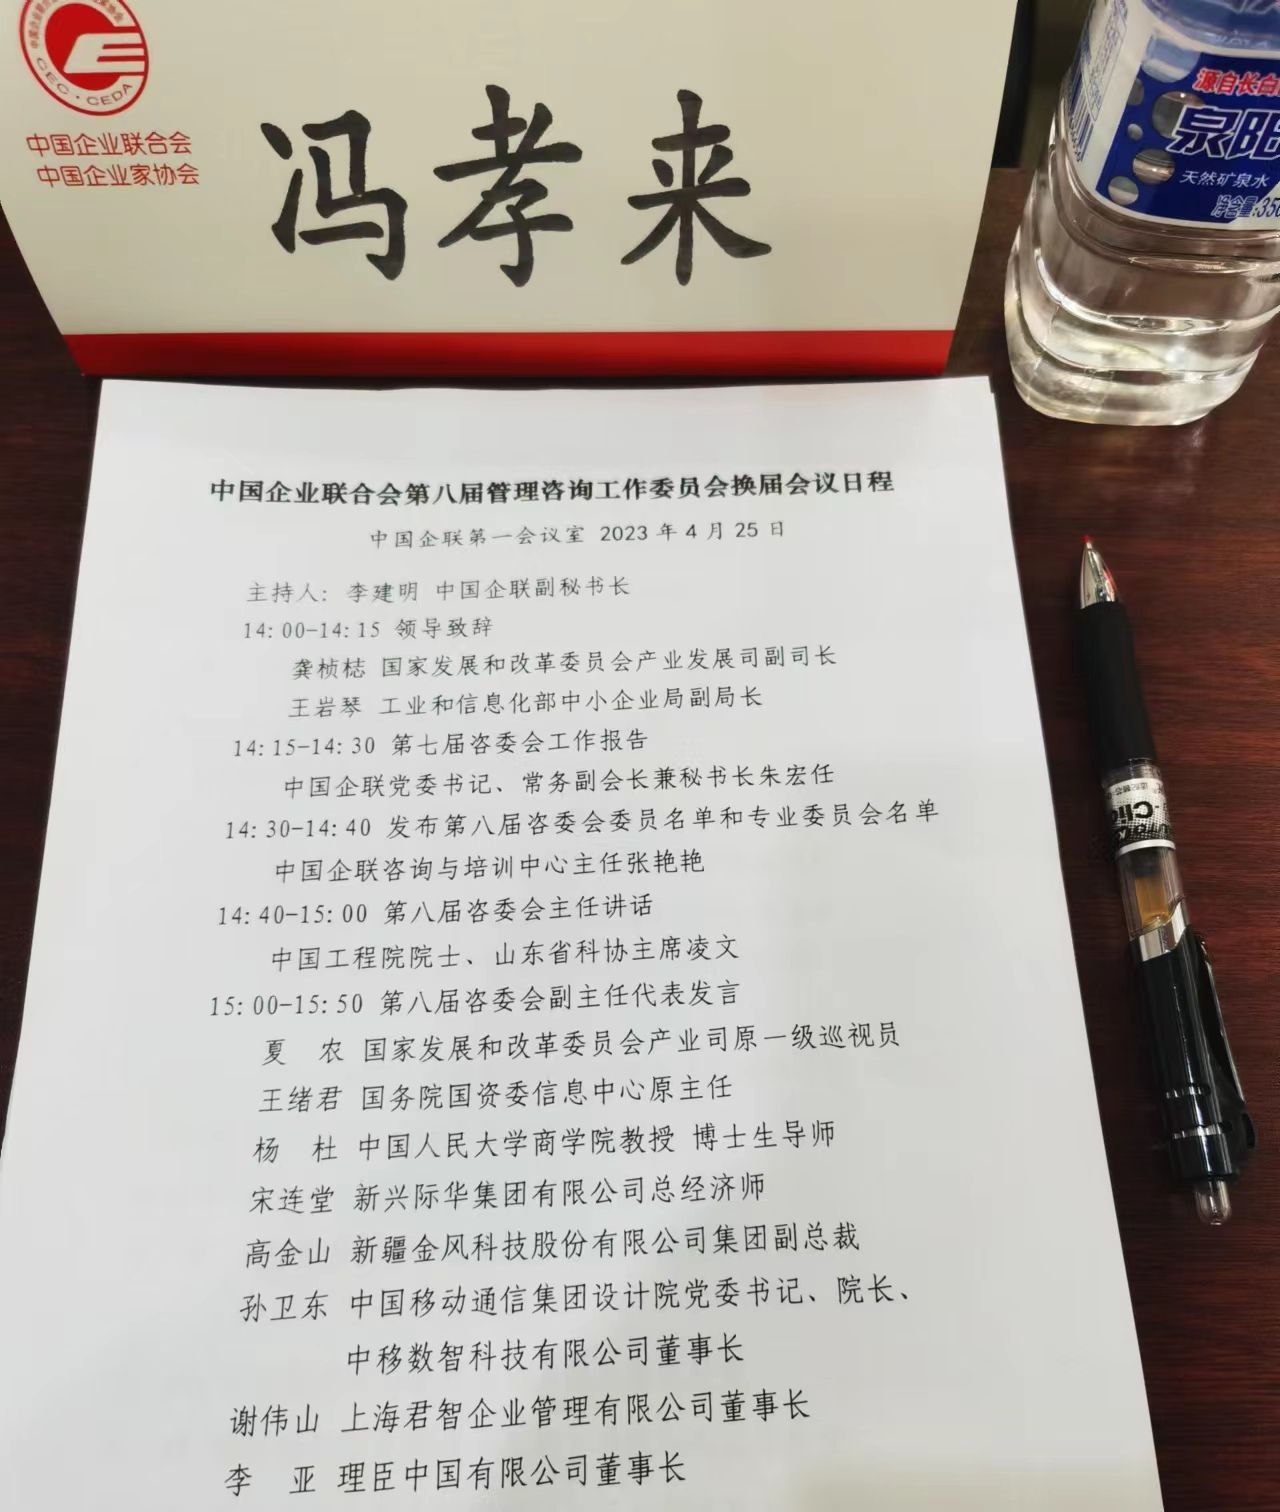 CEC·CEDA
中国企业联合会
中国企业家协会
冯孝来
源自长白
泉阳
天然矿泉水
净含量:350
中国企业联合会第八届管理咨询工作委员会换届会议日程
中国企联第一会议室 2023 年 4 月 25 日
主持人: 李建明 中国企联副秘书长
14:00-14:15 领导致辞
龚桢梽 国家发展和改革委员会产业发展司副司长
王岩琴 工业和信息化部中小企业局副局长
14:15-14:30 第七届咨委会工作报告
中国企联党委书记、常务副会长兼秘书长朱宏任
14:30-14:40 发布第八届咨委会委员名单和专业委员会名单
中国企联咨询与培训中心主任张艳艳
14:40-15:00 第八届咨委会主任讲话
中国工程院院士、山东省科协主席凌文
15:00-15:50 第八届咨委会副主任代表发言
夏 农 国家发展和改革委员会产业司原一级巡视员
王绪君 国务院国资委信息中心原主任
杨 杜 中国人民大学商学院教授 博士生导师
宋连堂 新兴际华集团有限公司总经济师
高金山 新疆金风科技股份有限公司集团副总裁
孙卫东 中国移动通信集团设计院党委书记、院长、
中移数智科技有限公司董事长
谢伟山 上海君智企业管理有限公司董事长
李 亚 理臣中国有限公司董事长